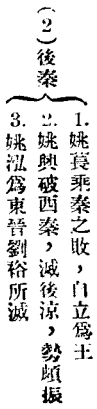 (2)後秦
1.姚萇乘秦之敗,自立爲王
2.姚興破西秦,滅後涼,勢頗振
3.姚泓爲東晉劉裕所滅